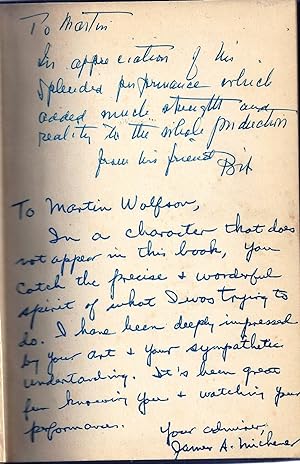 To Martin
In appreciation of his
splended performance which
added much strength and
reality to the whole production
from his friend
To Martin Wolfson,
In a character that does
not appear in this book, you
catch the precise & wonderful
spirit of what I was trying to
do. I have been deeply impressed
by your art & your sympathetic
understanding. It's been great
fun knowing you & watching your
performances.
Your admirer,
James A. Michener